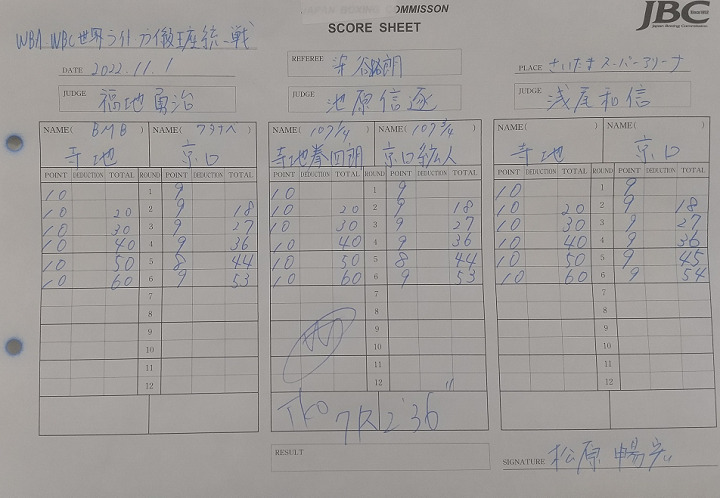 COMMISSON
SCORE SHEET
JBC
WBA.WBC世界ライトフライ級王座統一戦
DATE 2022.11.1
REFEREE
PLACE さいたまスーパーアリーナ
JUDGE 福地勇治
JUDGE 池原信遂
JUDGE 浅尾和信
NAME( BMB ) NAME( ワタナベ ) NAME( 107 1/4 ) NAME( 107 3/4 ) NAME( ) NAME( )
寺地 京口 寺地拳四朗 京口紘人 寺地 京口
POINT DEDUCTION TOTAL ROUND POINT DEDUCTION TOTAL POINT DEDUCTION TOTAL ROUND POINT DEDUCTION TOTAL POINT DEDUCTION TOTAL ROUND POINT DEDUCTION TOTAL
10 1 9 10 1 9 10 1 9
10 20 2 9 18 10 20 2 9 18 10 20 2 9 18
10 30 3 9 27 10 30 3 9 27 10 30 3 9 27
10 40 4 9 36 10 40 4 9 36 10 40 4 9 36
10 50 5 8 44 10 50 5 8 44 10 50 5 9 45
10 60 6 9 53 10 60 6 9 53 10 60 6 9 54
7 7 7
8 8 8
9 9 9
10 10 10
11 11 11
12 12 12
TKO 7R 2'36
RESULT
SIGNATURE 松原暢宏